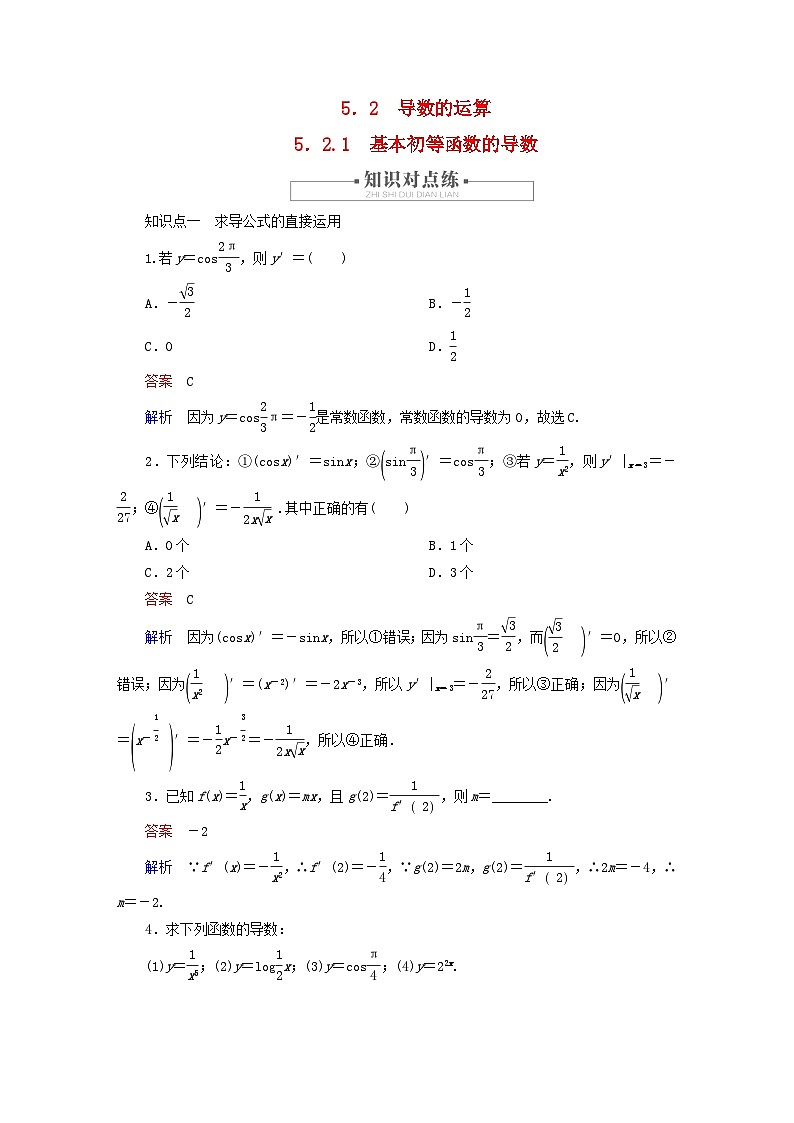 5．2　导数的运算
5．2.1　基本初等函数的导数
知识对点练
ZHI SHI DUI DIAN LIAN
知识点一　求导公式的直接运用
1.若y＝cos2π/3，则y′＝(　　)
A．－√3/2　　B．－1/2
C．0　　D.1/2
答案　C
解析　因为y＝cos2/3π＝－1/2是常数函数，常数函数的导数为0，故选C.
2．下列结论：①(cosx)′＝sinx；②(sinπ/3)′＝cosπ/3；③若y＝1/x²，则y′|x＝3＝－
2/27；④(1/√x)′＝－1/2x√x.其中正确的有(　　)
A．0个　　B．1个
C．2个　　D．3个
答案　C
解析　因为(cosx)′＝－sinx，所以①错误；因为sinπ/3＝√3/2，而(√3/2)′＝0，所以②
错误；因为(1/x²)′＝(x⁻²)′＝－2x⁻³，所以y′|x＝3＝－2/27，所以③正确；因为(1/√x)′
＝(x－1/2)′＝－1/2x－3/2＝－1/2x√x，所以④正确．
3．已知f(x)＝1/x，g(x)＝mx，且g(2)＝1/f′(2)，则m＝________.
答案　－2
解析　∵f′(x)＝－1/x²，∴f′(2)＝－1/4，∵g(2)＝2m，g(2)＝1/f′(2)，∴2m＝－4，∴
m＝－2.
4．求下列函数的导数：
(1)y＝1/x⁵；(2)y＝log1/2x；(3)y＝cosπ/4；(4)y＝2²ˣ.